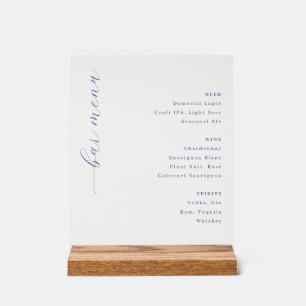 bar menu
BEER
Domestic Lager
Craft IPA, Light Beer
Seasonal Ale
WINE
Chardonnay
Sauvignon Blanc
Pinot Noir, Rosé
Cabernet Sauvignon
SPIRITS
Vodka, Gin
Rum, Tequila
Whiskey